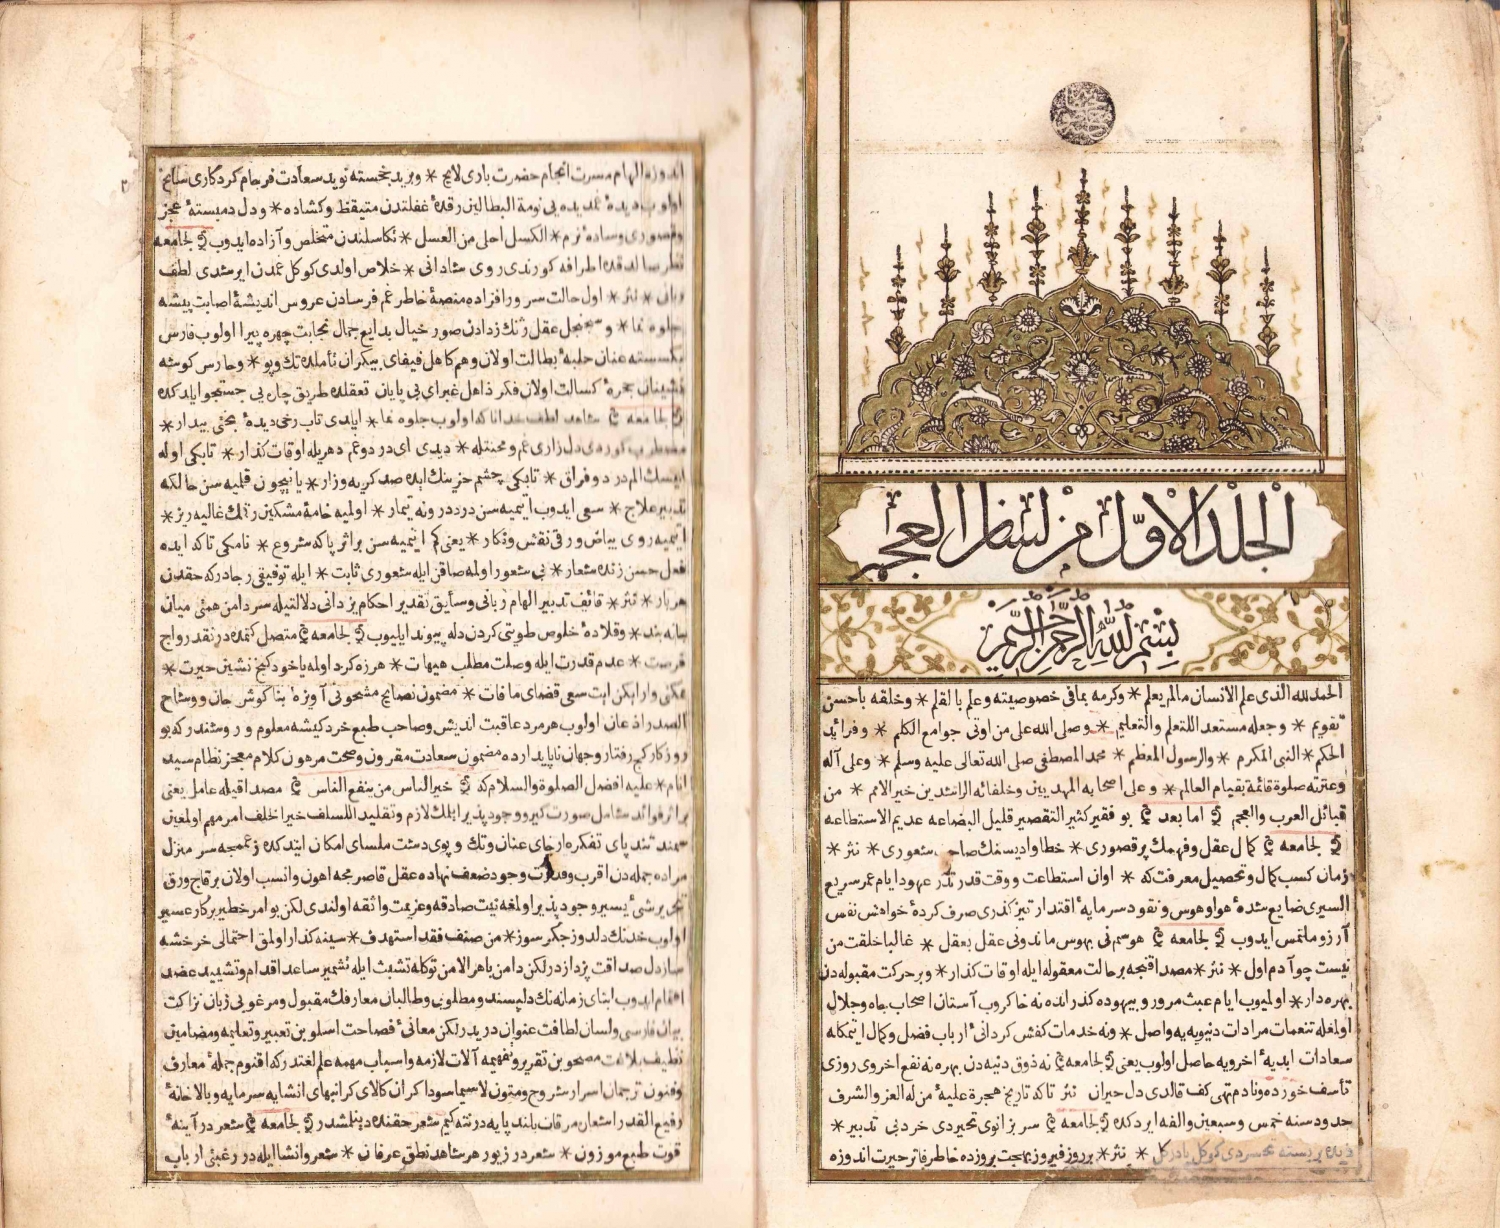 الجلد الاول من لسان العجم
بسم الله الرحمن الرحيم
الحمد لله الذى علم الانسان مالم يعلم * وكرمه بما فى خصوصيته وعلم بالقلم * وخلقه باحسن
تقويم * وجعله مستعد اللتعلم والتعليم * وصلى الله على من اوتى جوامع الكلم * وفرائد
الحكم * النبى المكرم * والرسول المعظم * محمد المصطفى صلى الله تعالى عليه وسلم * وعلى آله
وعترته صلوة قائمة بقيام العالم * وعلى اصحابه المهديين وخلفائه الراشدين خير الامم * من
قبائل العرب والعجم اما بعد بو فقير كثير التقصير قليل البضاعه عديم الاستطاعه
لجامعه كمال عقل وفهمك پر قصورى * خطا واديسنك صاحب شعورى * نثر *
زمان كسب كمال وتحصيل معرفت كه * اوان استطاعت ووقت قدرتدر عهود ايام عمر سريع
السيرى ضايع شدۀ هوا وهوس ونقود سرمايۀ اقتدار تيز كذرى صرف كردۀ خواهش نفس
آرزو ملتمس ايدوب لجامعه هوسم نى بهوس ماندونى عقل بعقل * غالبا خلقت من
نيست چو آدم اول * نثر * مصداقنجه بر حالت معقوله ايله اوقات كذار * وبر حركت مقبوله دن
بهره دار * اولميوب ايام عبث مرور وبيهوده كذر انده نه خاكروب آستان اصحاب جاه وجلال
اولمغله تنعمات مرادات دنيويه يه واصل * ونه خدمات كفش كردانئ ارباب فضل وكمال ايتمكله
سعادات ابديۀ اخرويه حاصل اولوب يعنى لجامعه نه ذوق دنيه دن بهره نه نفع اخروى روزى
تأسف خورده ونادم تهى كف قالدى دل حيران نثر تاكه تاريخ هجرة عليۀ من له العز والشرف
حدود سنه خمس وسبعين والفه ايردكده لجامعه سر بزانوى تحيردى خرد بى تدبير *
نثر * بر روز فيروز بهجت بروزده خاطر فاتر حيرت اندوزه
اندوزه الهام مسرت انجام حضرت بارى لايح * وبريد خجسته نويد سعادت فرجام كردكارى سانح
اولوب ديدۀ غمديده يى نومة البطالين رقدۀ غفلتدن متيقظ وكشاده * ودل دمبستۀ عجز
وقصورى وساده نرم * الكسل احلى من العسل * تكاسلندن متخلص وآزاده ايدوب لجامعه
اطرافه كورندى روى شادانى * خلاص اولدى كوكل غمدن ايرشدى لطف
* نثر * اول حالت سرور افزاده منصۀ خاطر غم فرسادن عروس انديشۀ اصابت پيشه
جلوه نما * وسجنجل عقل ژنك زدادن صور خيال بدايع جمال نجابت چهره پيرا اولوب فارس
عنان حلبۀ بطالت اولان وهم كاهل فيفاى بيكران تأملده تك وپو * وحارس كوشه
نشينان حجرۀ كسالت اولان فكر ذاهل غبراى بى پايان تعقلده طريق چاره يى جستجو ايلدكده
لجامعه شاهد لطف خدا ناكه اولوب جلوه نما * ايلدى تاب رخى ديدۀ بختى بيدار *
دل زارى غم ومحنتله * ديدى اى درد وغم دهريله اوقات كذار * تابكى اوله
درد وفراق * تابكى چشم حزينك ايده صد كريه وزار * يا نيچون قلبه سن حالكه
تدبير علاج * سعى ايدوب ايتميه سن درد درونه تيمار * اولميه خامۀ مشكين رقمك غاليه ريز *
ايتميه روى بياض ورقى نقش ونكار * يعنى كم ايتميه سن بر اثر پاكه شروع * نامكى تاكه ايده
اهل حسن زنده شعار * بى شعور اولمه صاقن ايله شعورى ثابت * ايله توفيقى رجا دركه حقدن
هر بار * نثر * قائف تدبير الهام ربانى وسايق تقدير احكام يزدانى دلالتيله سر دامن همتى ميان
جانه بند * وقلادۀ خلوص طويتى كردن دله پيوند ايليوب لجامعه متصل كتمده در نقد رواج
فرصت * عدم قدرت ايله وصلت مطلب هيهات * هرزه كرد اولمه ياخود كنج نشين حيرت *
ممكنى وار ايكن ايت سعى قضاى مافات * مضمون نصايح مشحونى آويزۀ بناكوش جان ووشاح
الصدر اذعان اولوب هر مرد عاقبت انديش وصاحب طبع خرد كيشه معلوم وروشندر كه بو
روزكار كج رفتار وجهان ناپايدارده مضمون سعادت مقرون وصحت مرهون كلام معجز نظام سيد
انام * عليه افضل الصلوة والسلام كه خير الناس من ينفع الناس مصداقيله عامل يعنى
بر اثر فوائد شامل صورت كير ووجود پذير ايلمك لازم وتقليد اللسلف خير الخلف امر مهم اولمغين
سمند تند پاى تفكره ارخاى عنان وتك وپوى دشت ملساى امكان ايتدكده زعمجه سر منزل
مراده جمله دن اقرب وقدرت وجود ضعف نهاده عقل قاصرمجه اهون وانسب اولان بر قاچ ورق
تحرير شئ يسير وجود پذير اولمغه نيت صادقه وعزيمت واثقه اولندى لكن بو امر خطير پر كار عسير
اولوب خدنك دلدوز جكر سوز * من صنف فقد استهدف * سينه كذار اولمق احتمالى خرخشه
ساز دل صداقت پرداز در لكن دامن يا هر الامن توكله تشبث ايله تشمير ساعد اقدام وتشييد عضد
اهتمام ايدوب ابناى زمانه نك دلپسند ومطلوبى وطالبان معارفك مقبول ومرغوبى زبان نزاكت
بيان فارسى ولسان لطافت عنوان دريدر لكن معانئ فصاحت اسلوبن تعبير وتعليمه ومضامين
بلاغت مصحوبن تقرير وتفهيمه آلات لازمه واسباب مهمه علم لغتدر كه اقنوم جملۀ معارف
وفنون ترجمان اسرار شروح ومتون لاسيما سوداكران كالاى كرانبهاى انشايه سرمايه وبالاخانۀ
رفيع القدر اشعار مرقات بلند پايه در نته كيم شعر حقنده دينلمشدر لجامعه شعر در آينۀ
قوت طبع موزون * شعر در زيور هر شاهد نطق عرفان * شعر وانشا ايله در رغبتئ ارباب